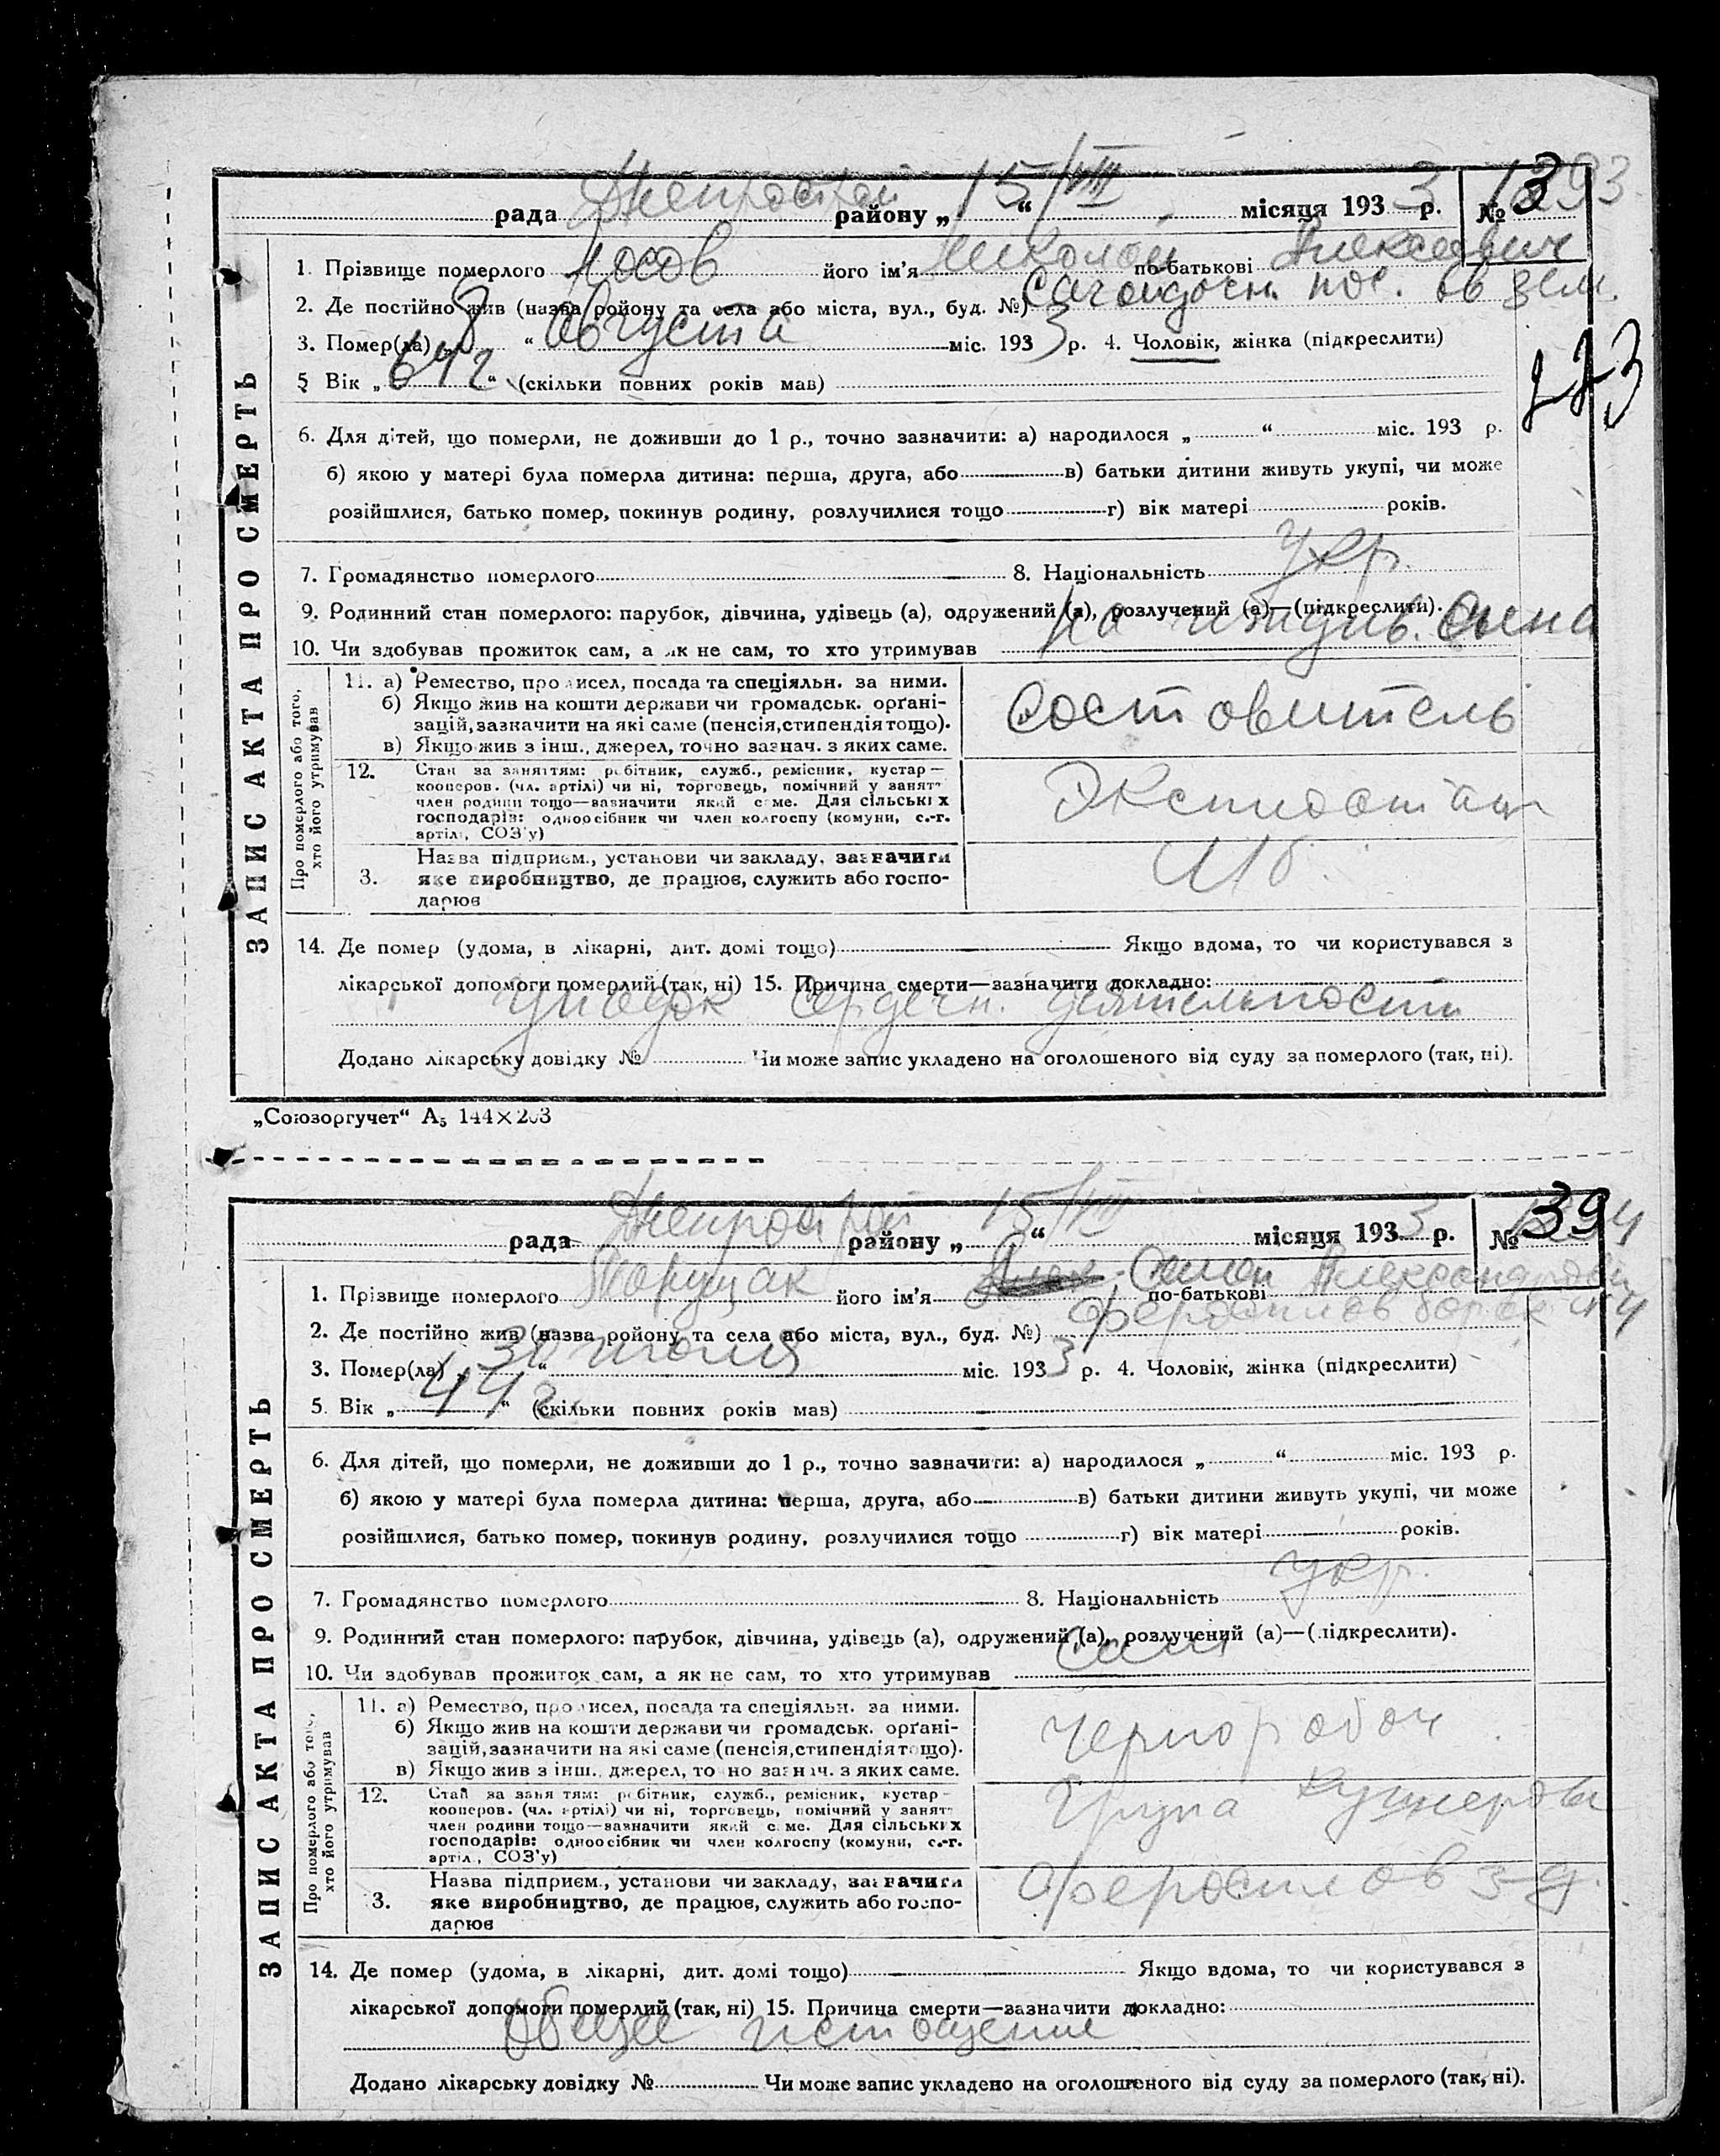 рада Днепрострой району „ 15/VIII “ місяця 1933 р. №
1. Прізвище померлого Носов його ім'я Николай по-батькові Алексеевич
2. Де постійно жив (назва району та села або міста, вул., буд. №) пос.
3. Помер(ла) „ 8 “ Августа міс. 1933 р. 4. Чоловік, жінка (підкреслити)
5 Вік „ 64 г. “ (скільки повних років мав)
6. Для дітей, що померли, не доживши до 1 р., точно зазначити: а) народилося „ “ міс. 193 р.
б) якою у матері була померла дитина: перша, друга, або в) батьки дитини живуть укупі, чи може
розійшлися, батько помер, покинув родину, розлучилися тощо г) вік матері років.
7. Громадянство померлого 8. Національність Укр.
9. Родинний стан померлого: парубок, дівчина, удівець (а), одружений (а), розлучений (а)—(підкреслити).
10. Чи здобував прожиток сам, а як не сам, то хто утримував на иждив. сына
ЗАПИС АКТА ПРО СМЕРТЬ
Про померлого або того, хто його утримував
11. а) Ремество, промисел, посада та спеціяльн. за ними.
б) Якщо жив на кошти держави чи громадськ. орґані-
зацій, зазначити на які саме (пенсія, стипендія тощо).
в) Якщо жив з інш., джерел, точно зазнач. з яких саме.
Составитель
12. Стан за заняттям: робітник, служб., ремісник, кустар—
кооперов. (чл. артілі) чи ні, торговець, помічний у занятт
член родини тощо—зазначити який саме. Для сільських
господарів: одноосібник чи член колгоспу (комуни, с.-г.
артілі, СОЗ'у)
3. Назва підприєм., установи чи закладу, зазначити
яке виробництво, де працює, служить або госпо-
дарює
14. Де помер (удома, в лікарні, дит. домі тощо) Якщо вдома, то чи користувався з
лікарської допомоги померлий (так, ні) 15. Причина смерти—зазначити докладно:
упадок сердечн. деятельности
Додано лікарську довідку № Чи може запис укладено на оголошеного від суду за померлого (так, ні).
„Союзоргучет“ А5 144×203
рада Днепрострой району „ 15/VIII “ місяця 1933 р. №
1. Прізвище померлого його ім'я Семен по-батькові Александрович
2. Де постійно жив (назва району та села або міста, вул., буд. №) Феросплав барак
3. Помер(ла) „ 30 июля “ міс. 1933 р. 4. Чоловік, жінка (підкреслити)
5. Вік „ 44 г. “ (скільки повних років мав)
6. Для дітей, що померли, не доживши до 1 р., точно зазначити: а) народилося „ “ міс. 193 р.
б) якою у матері була померла дитина: перша, друга, або в) батьки дитини живуть укупі, чи може
розійшлися, батько помер, покинув родину, розлучилися тощо г) вік матері років.
7. Громадянство померлого 8. Національність Укр.
9. Родинний стан померлого: парубок, дівчина, удівець (а), одружений (а), розлучений (а)—(підкреслити).
10. Чи здобував прожиток сам, а як не сам, то хто утримував Сам
ЗАПИС АКТА ПРО СМЕРТЬ
Про померлого або того, хто його утримував
11. а) Ремество, промисел, посада та спеціяльн. за ними.
б) Якщо жив на кошти держави чи громадськ. орґані-
зацій, зазначити на які саме (пенсія, стипендія тощо).
в) Якщо жив з інш., джерел, точно зазнач. з яких саме.
Чернорабоч
12. Стан за заняттям: робітник, служб., ремісник, кустар—
кооперов. (чл. артілі) чи ні, торговець, помічний у занятт
член родини тощо—зазначити який саме. Для сільських
господарів: одноосібник чи член колгоспу (комуни, с.-г.
артіл., СОЗ'у)
Група Кушнерова
3. Назва підприєм., установи чи закладу, зазначити
яке виробництво, де працює, служить або госпо-
дарює
Феросплав з-д.
14. Де помер (удома, в лікарні, дит. домі тощо) Якщо вдома, то чи користувався з
лікарської допомоги померлий (так, ні) 15. Причина смерти—зазначити докладно:
общее истощение
Додано лікарську довідку № Чи може запис укладено на оголошеного від суду за померлого (так, ні).